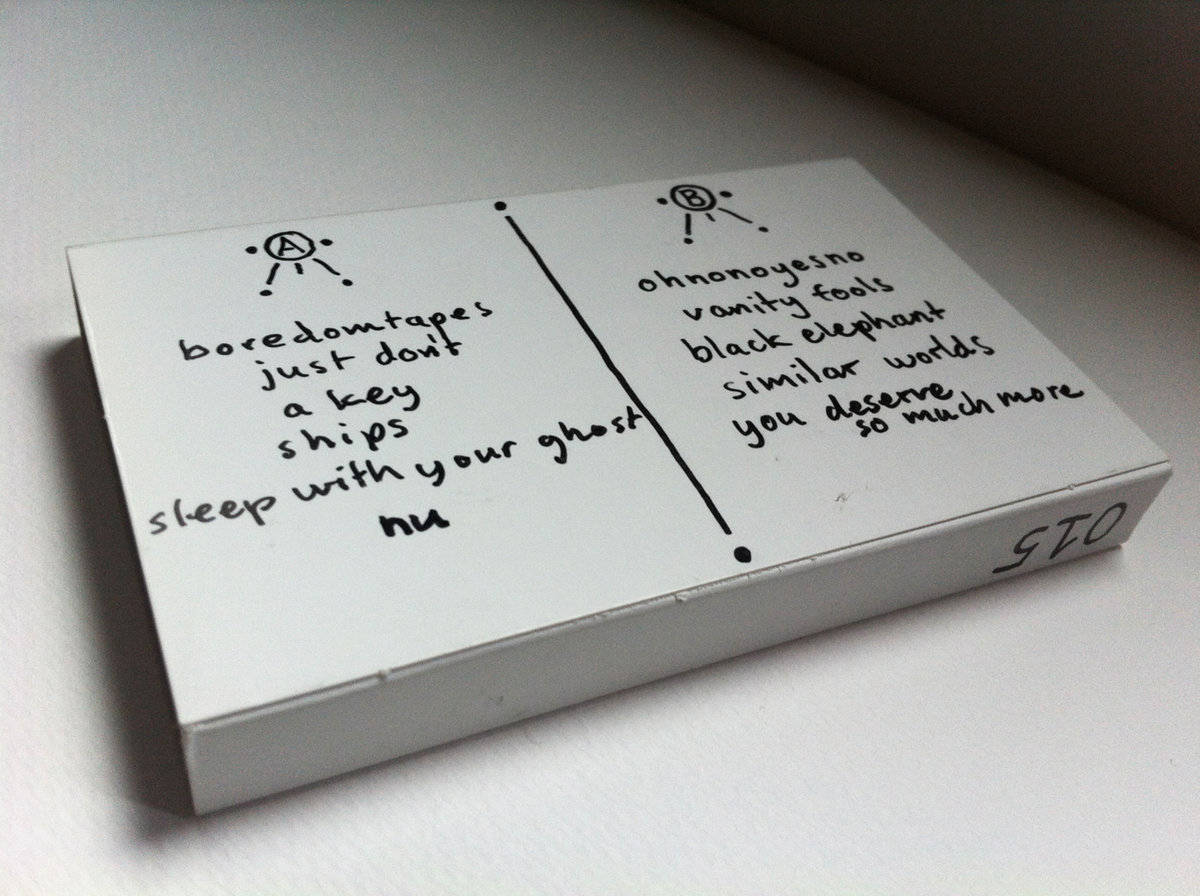 A
boredomtapes
just don't
a key
ships
sleep with your ghost
nu
B
ohnonoyesno
vanity fools
black elephant
similar worlds
you deserve
so much more
015